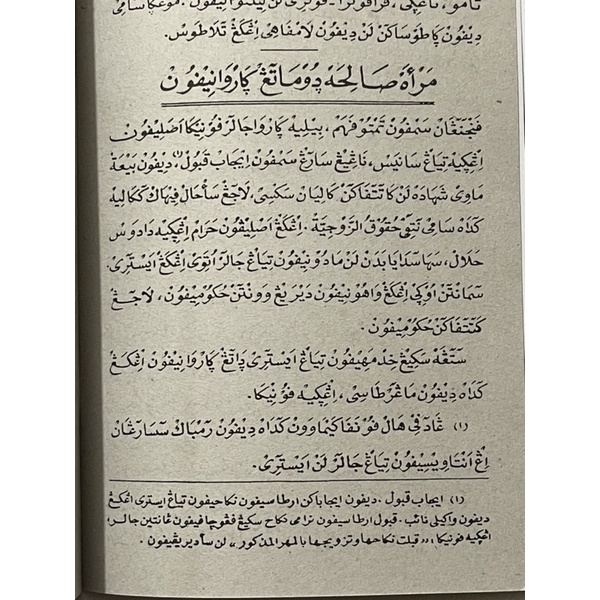 ديفون ڮاطوساكن لن ديفون لامفاهي اڠكڠ تلاطوس.
مرأة صالحه دوماتڠ ڤاروانيفون
فنجنڠان سمفون تمتو فهم، بيليه ڤاروا جالر فونيكا اصليفون
اڠكيه تياڠ سانيس، ناڠيڠ سارڠ سمفون ايجاب قبول، (١) ديفون بيعة
ماوي شهاده لن كاتتفاكن كاليان سكسي، لاجڠ سأحال فيهاك ككاليه
كداه سامي نتفي حقوق الزوجية. اڠكڠ اصليفون حرام اڠكيه دادوس
حلال، سها سدايا بدن لن مادونيفون تياڠ جالر اتوي اڠكڠ ايستري.
سمانتن اوكي اڠكڠ واهونيفون ديريڠ وونتن حكوميفون، لاجڠ
كتتفاكن حكوميفون.
ستڠه سكيڠ خدمهيفون تياڠ ايستري داتڠ ڤاروانيفون اڠكڠ
كداه ديفون ماڠرطاسي، اڠكيه فونيكا.
(١) ڠادفي هال فونفاكيماوون كداه ديفون رمباك سسارڠان
اڠ انتاويسيفون تياڠ جالر لن ايستري.
(١) ايجاب قبول. ديفون ايجاباكن ارطاسيفون نكاحيفون تياڠ ايستري اڠكڠ
ديفون واكيلي نائب. قبول ارطاسيفون نرامي نكاح سكيڠ فڠوچافيفون فمانتين جالر،
اڠكيه فونيكا: «قبلت نكاحها وتزويجها بالمهر المذكور» لن سأديريڠيفون.